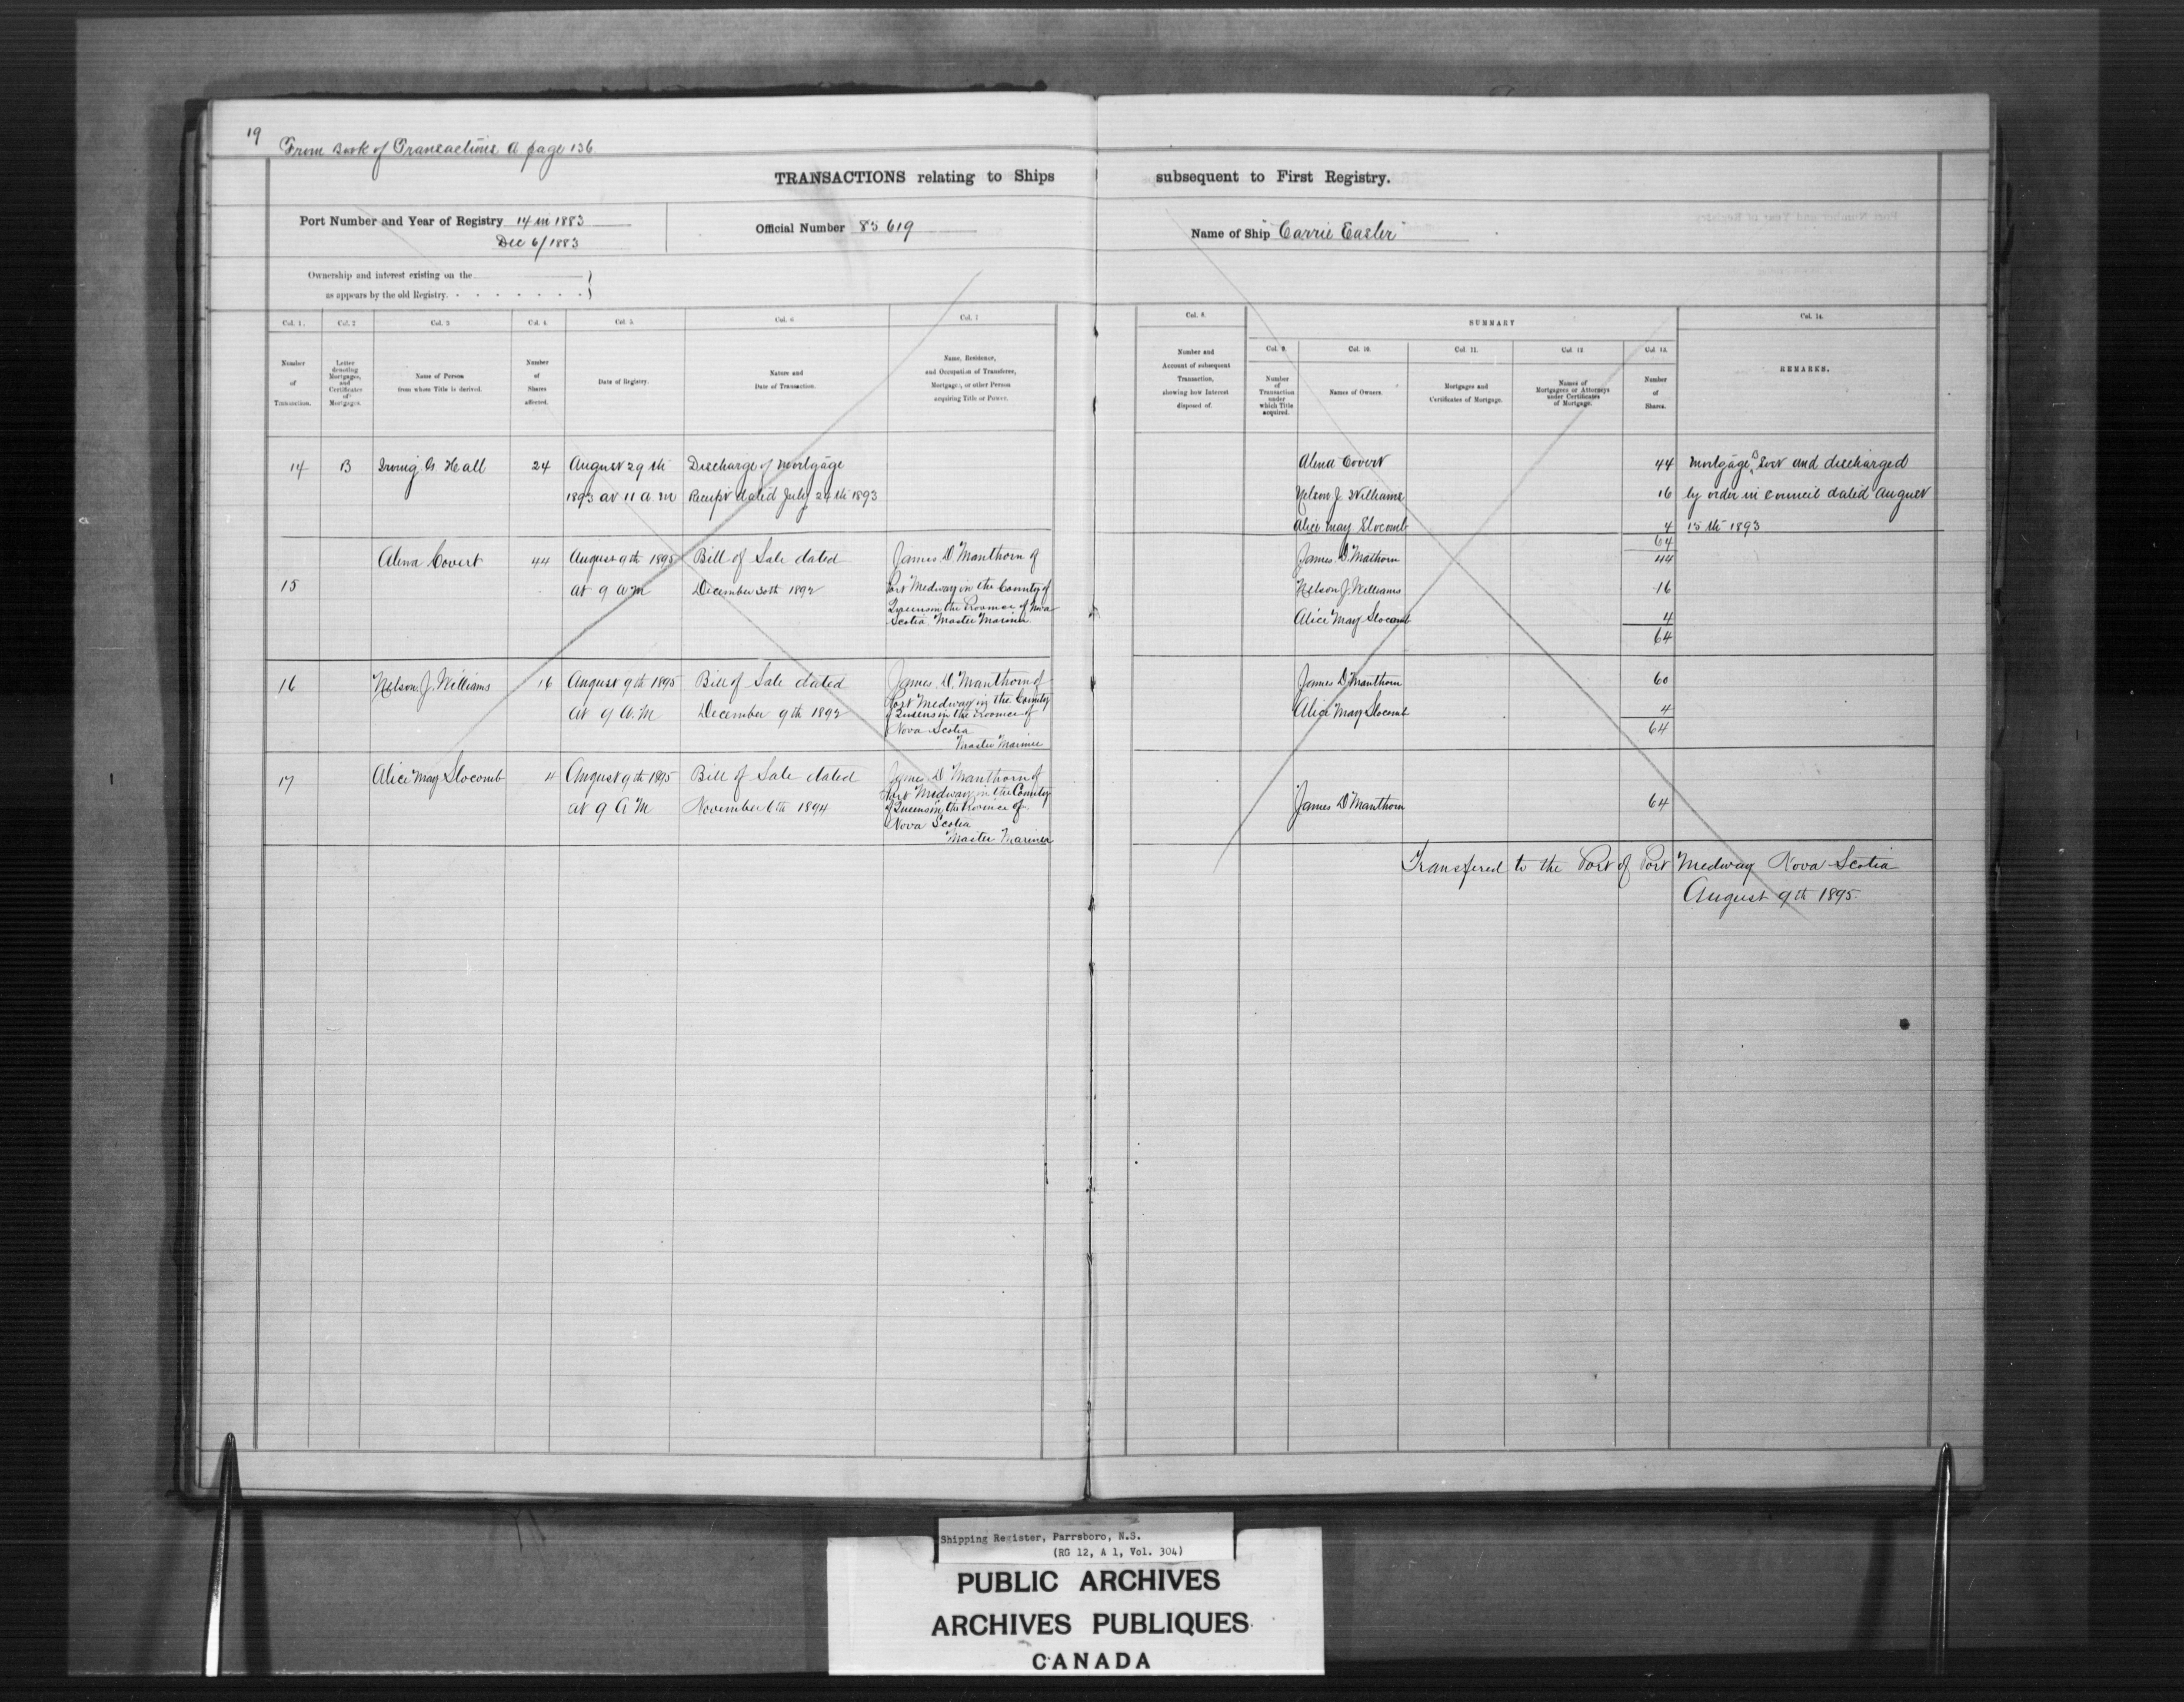 19
From Book of Transactions A page 136
TRANSACTIONS relating to Ships subsequent to First Registry.
Port Number and Year of Registry 14 in 1883
Dec 6/1883
Official Number 85619
Name of Ship "Carrie Easler"
Ownership and interest existing on the
as appears by the old Registry.
Col. 1.
Number
of
Transaction.
Col. 2
Letter
denoting
Mortgages,
and
Certificates
of
Mortgages.
Col. 3
Name of Person
from whom Title is derived.
Col. 4.
Number
of
Shares
affected.
Col. 5.
Date of Registry.
Col. 6
Nature and
Date of Transaction.
Col. 7
Name, Residence,
and Occupation of Transferee,
Mortgagee, or other Person
acquiring Title or Power.
Col. 8.
Number and
Account of subsequent
Transaction,
showing how Interest
disposed of.
SUMMARY
Col. 9.
Number
of
Transaction
under
which Title
acquired.
Col. 10.
Names of Owners.
Col. 11.
Mortgages and
Certificates of Mortgage.
Col. 12
Names of
Mortgagees or Attorneys
under Certificates
of Mortgage.
Col. 13.
Number
of
Shares.
Col. 14.
REMARKS.
14
B
Irving G. Hall
24
August 29th
1893 at 11 a.m
Discharge of Mortgage
Receipt dated July 24th 1893
Alena Covert 44
Nelson J Williams 16
Alice May Slocomb 4
64
Mortgage B lost and discharged
by order in council dated August
15th 1893
15
Alena Covert
44
August 9th 1895
at 9 a M
Bill of Sale dated
December 30th 1892
James D Manthorn of
Port Medway in the County of
Queens in the Province of Nova
Scotia. Master Mariner
James D. Mathorn 44
Nelson J. Williams 16
Alice May Slocomb 4
64
16
Nelson J. Williams
16
August 9th 1895
at 9 A.M
Bill of Sale dated
December 9th 1892
James D Manthorn of
Port Medway in the County
of Queens in the Province of
Nova Scotia
Master Mariner
James D Manthorn 60
Alice May Slocomb 4
64
17
Alice May Slocomb
4
August 9th 1895
at 9 A M
Bill of Sale dated
November 6th 1894
James D Manthorn of
Port Medway in the County
of Queens in the Province of
Nova Scotia
Master Mariner
James D Manthorn 64
Transfered to the Port of Port Medway Nova Scotia
August 9th 1895.
Shipping Register, Parrsboro, N.S.
(RG 12, A 1, Vol. 304)
PUBLIC ARCHIVES
ARCHIVES PUBLIQUES
CANADA